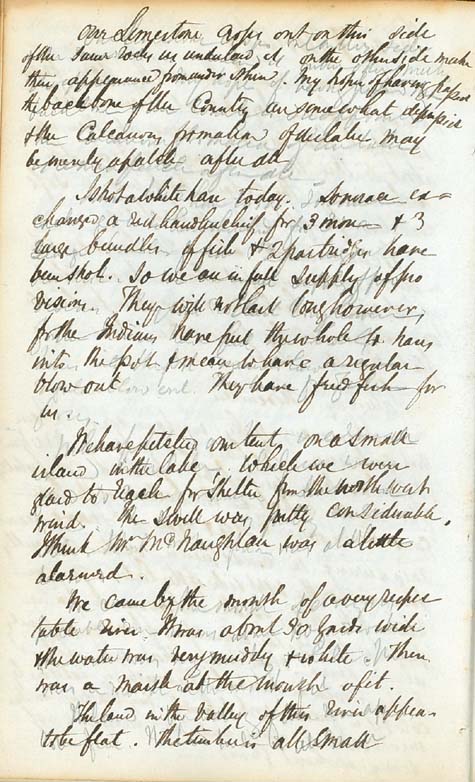 Our Limestone crops out on this side
of the same rocks as undulated, it, on the other side make
their appearance from under them. My hopes of having passed
the backbone of the Country are somewhat dissipated
& the Calcareous formation of the lake may
be merely a patch after all
I shot a white hare today. I
changed a red handkerchief for 3 more & 3
large bundles of fish & 2 partridges have
been shot. So we are in full supply of pro
visions. They will not last long however,
for the Indians have put the whole 4 hares
into the pot & mean to have a regular
blow out. They have fried fish for
us.
We have pitched our tents on a small
island in the lake. Which we were
glad to reach for Shelter from the north west
wind. The swell was pretty considerable.
I think Mr McNaughtan was a little
alarmed.
We came by the mouth of a very respec
table river. It was about 30 yards wide
& the water was very muddy & white. There
was a marsh at the mouth of it.
The land in the valley of this river appears
to be flat. The timber is all small